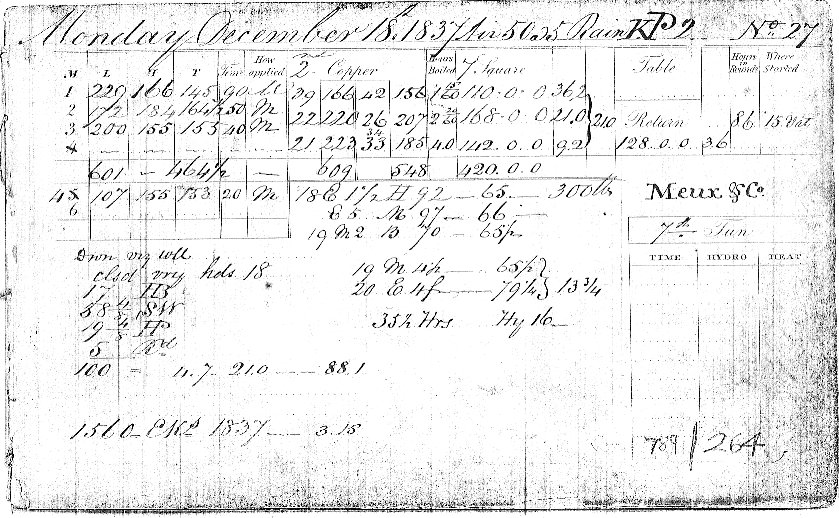 Monday December 18th 1837 Air 50 Rain KP 2 No 27
M L H T Time How applied 2nd Copper Hours Boiled 7 Square Table Hours in Rounds Where Started
1 229 166 145 90 29 166 42 156 110 0 0 36.2
2 172 184 164½ 50 M 22 220 26 207 168 0 0 21.0 210 Return 86 15 Vat
3 200 155 155 40 M 21 223 33 34 185 40 142.0.0 9.2 128.0.0 36
4
601 — 464½ — 609 548 420.0.0
5 107 155 153 20 M 18 E 1½ H 92 — 65 — 300 lb
6 E 5 M 97 — 66 — Meux & Co.
19 M 2 B 70 — 65½ 7th Tun
TIME HYDRO HEAT
Drn vry well
clsd vry hds 18 19 M 4½ — 65½
17 HB 20 E 4 — 79¼ 13¾
58 SW
19 HP 35½ Hrs Hy 16 —
5
100 — 4.7 21.0 — 88.1
1560 — CKP 1837 — 3.15
789 / 264